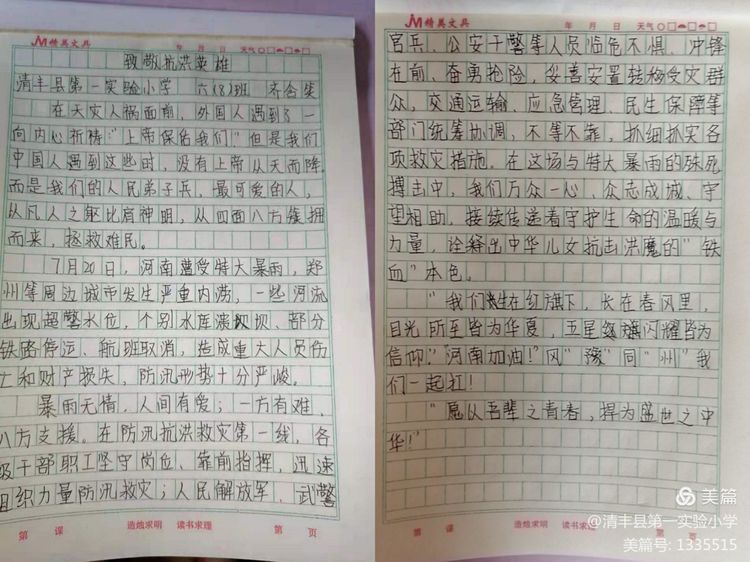 精美文具
年 月 日 天气
致敬抗洪英雄
清丰县第一实验小学 六(8)班 齐合笑
在天灾人祸面前,外国人遇到了一
向内心祈祷:"上帝保佑我们!"但是我们
中国人遇到这些时,没有上帝从天而降,
而是我们的人民弟子兵,最可爱的人,
从凡人之躯比肩神明,从四面八方簇拥
而来,拯救难民。
7月20日,河南遭受特大暴雨,郑
州等周边城市发生严重内涝,一些河流
出现超警水位,个别水库溃坝、部分
铁路停运、航班取消,造成重大人员伤
亡和财产损失,防汛形势十分严峻。
暴雨无情,人间有爱;一方有难,
八方支援。在防汛抗洪救灾第一线,各
级干部职工坚守岗位、靠前指挥,迅速
组织力量防汛救灾;人民解放军、武警
第 课 造烛求明 读书求理 第 页
精美文具
年 月 日 天气
官兵、公安干警等人员临危不惧、冲锋
在前、奋勇抢险,妥善安置转移受灾群
众,交通运输、应急管理、民生保障等
部门统筹协调,不等不靠,抓细抓实各
项救灾措施。在这场与特大暴雨的殊死
搏击中,我们万众一心、众志成城、守
望相助,接续传递着守护生命的温暖与
力量,诠释出中华儿女抗击洪魔的"铁
血"本色。
"我们生在红旗下,长在春风里,
目光所至皆为华夏,五星红旗闪耀皆为
信仰。"河南加油!"风"豫"同"州"我
们一起扛!
"愿以吾辈之青春,捍为盛世之中
华!"
第 课 造烛求明 读书求理 第 页
美篇
@清丰县第一实验小学
美篇号: 1335515